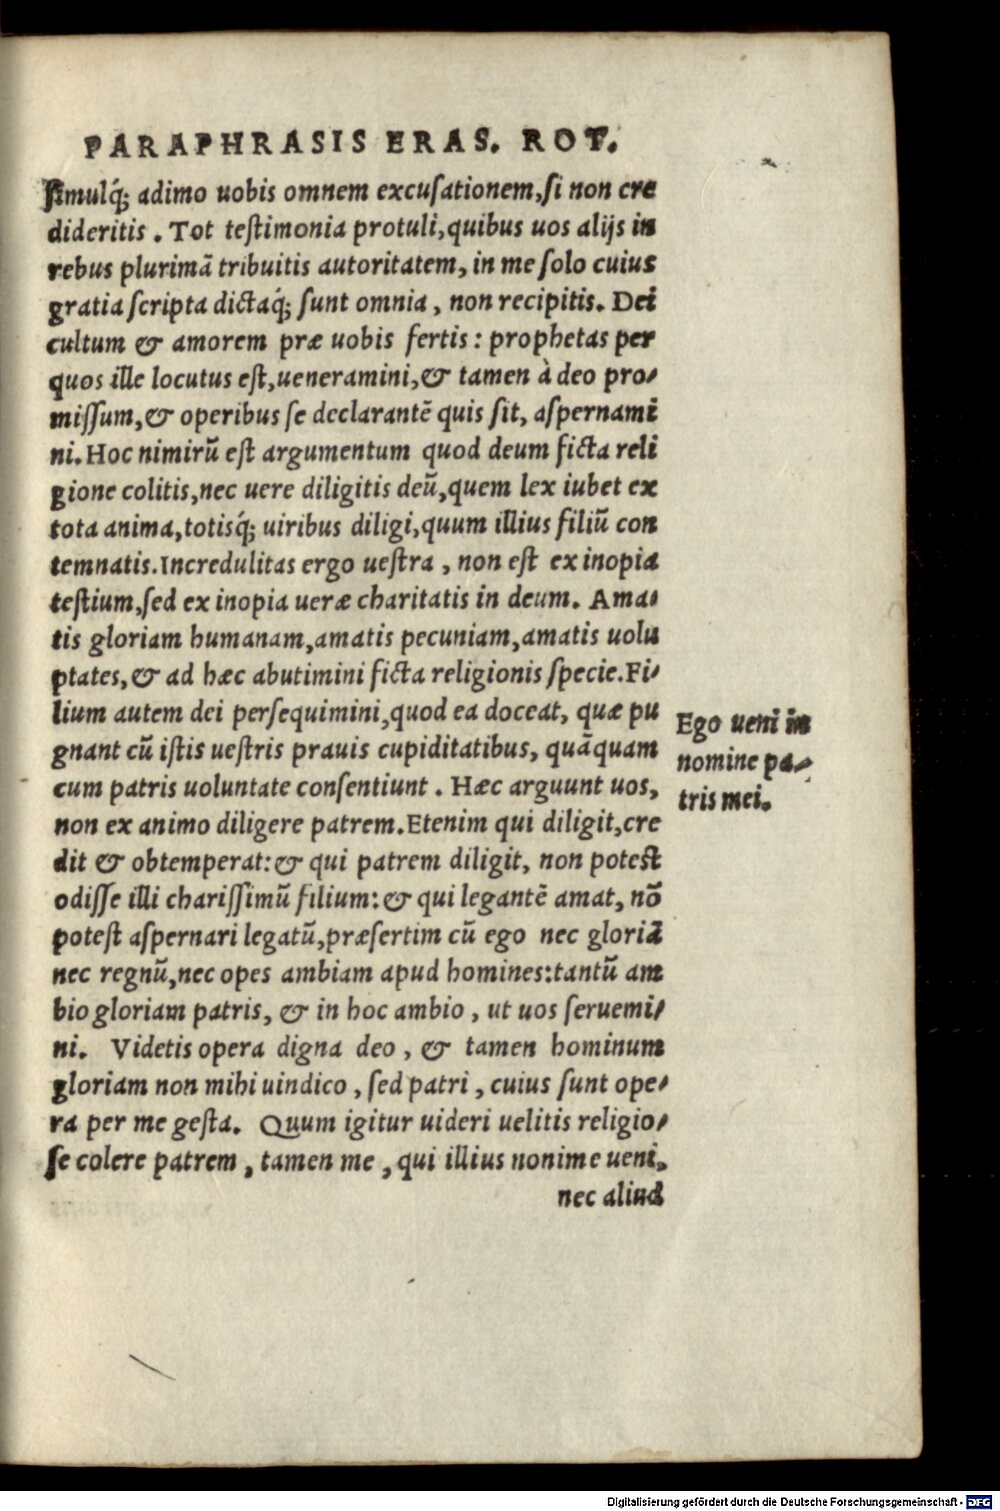 PARAPHRASIS ERAS. ROT.
simulq́; adimo uobis omnem excusationem, si non cre
dideritis. Tot testimonia protuli, quibus uos alijs in
rebus plurimā tribuitis autoritatem, in me solo cuius
gratia scripta dictaq́; sunt omnia, non recipitis. Dei
cultum & amorem præ uobis fertis: prophetas per
quos ille locutus est, ueneramini, & tamen à deo pro-
missum, & operibus se declarantē quis sit, aspernami
ni. Hoc nimirū est argumentum quod deum ficta reli
gione colitis, nec uere diligitis deū, quem lex iubet ex
tota anima, totisq́; uiribus diligi, quum illius filiū con
temnatis. Incredulitas ergo uestra, non est ex inopia
testium, sed ex inopia ueræ charitatis in deum. Ama-
tis gloriam humanam, amatis pecuniam, amatis uolu
ptates, & ad hæc abutimini ficta religionis specie. Fi-
lium autem dei persequimini, quod ea doceat, quæ pu
gnant cū istis uestris prauis cupiditatibus, quāquam
cum patris uoluntate consentiunt. Hæc arguunt uos,
non ex animo diligere patrem. Etenim qui diligit, cre
dit & obtemperat: & qui patrem diligit, non potest
odisse illi charissimū filium: & qui legantē amat, nō
potest aspernari legatū, præsertim cū ego nec gloriā
nec regnū, nec opes ambiam apud homines: tantū am
bio gloriam patris, & in hoc ambio, ut uos seruemi-
ni. Videtis opera digna deo, & tamen hominum
gloriam non mihi uindico, sed patri, cuius sunt ope-
ra per me gesta. Quum igitur uideri uelitis religio-
se colere patrem, tamen me, qui illius nonime ueni,
nec aliud
Ego ueni in
nomine pa-
tris mei.
Digitalisierung gefördert durch die Deutsche Forschungsgemeinschaft - DFG